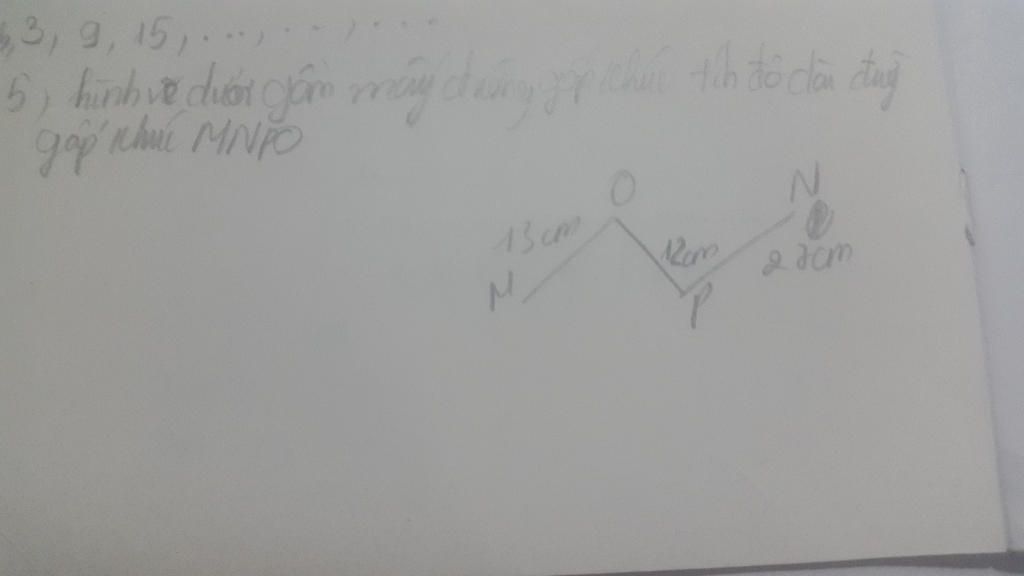 3, 9, 15, ..., ..., ....
5, hình vẽ dưới gồm mấy đường gấp khúc tính độ dài đường
gấp khúc MNPO
O
N
13cm
12cm
27cm
M
P